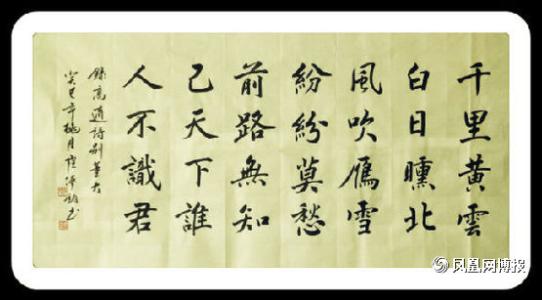 千里黃雲
白日曛北
風吹雁雪
紛紛莫愁
前路無知
己天下誰
人不識君
錄高適詩別董大
癸巳年桃月
凤凰网博报